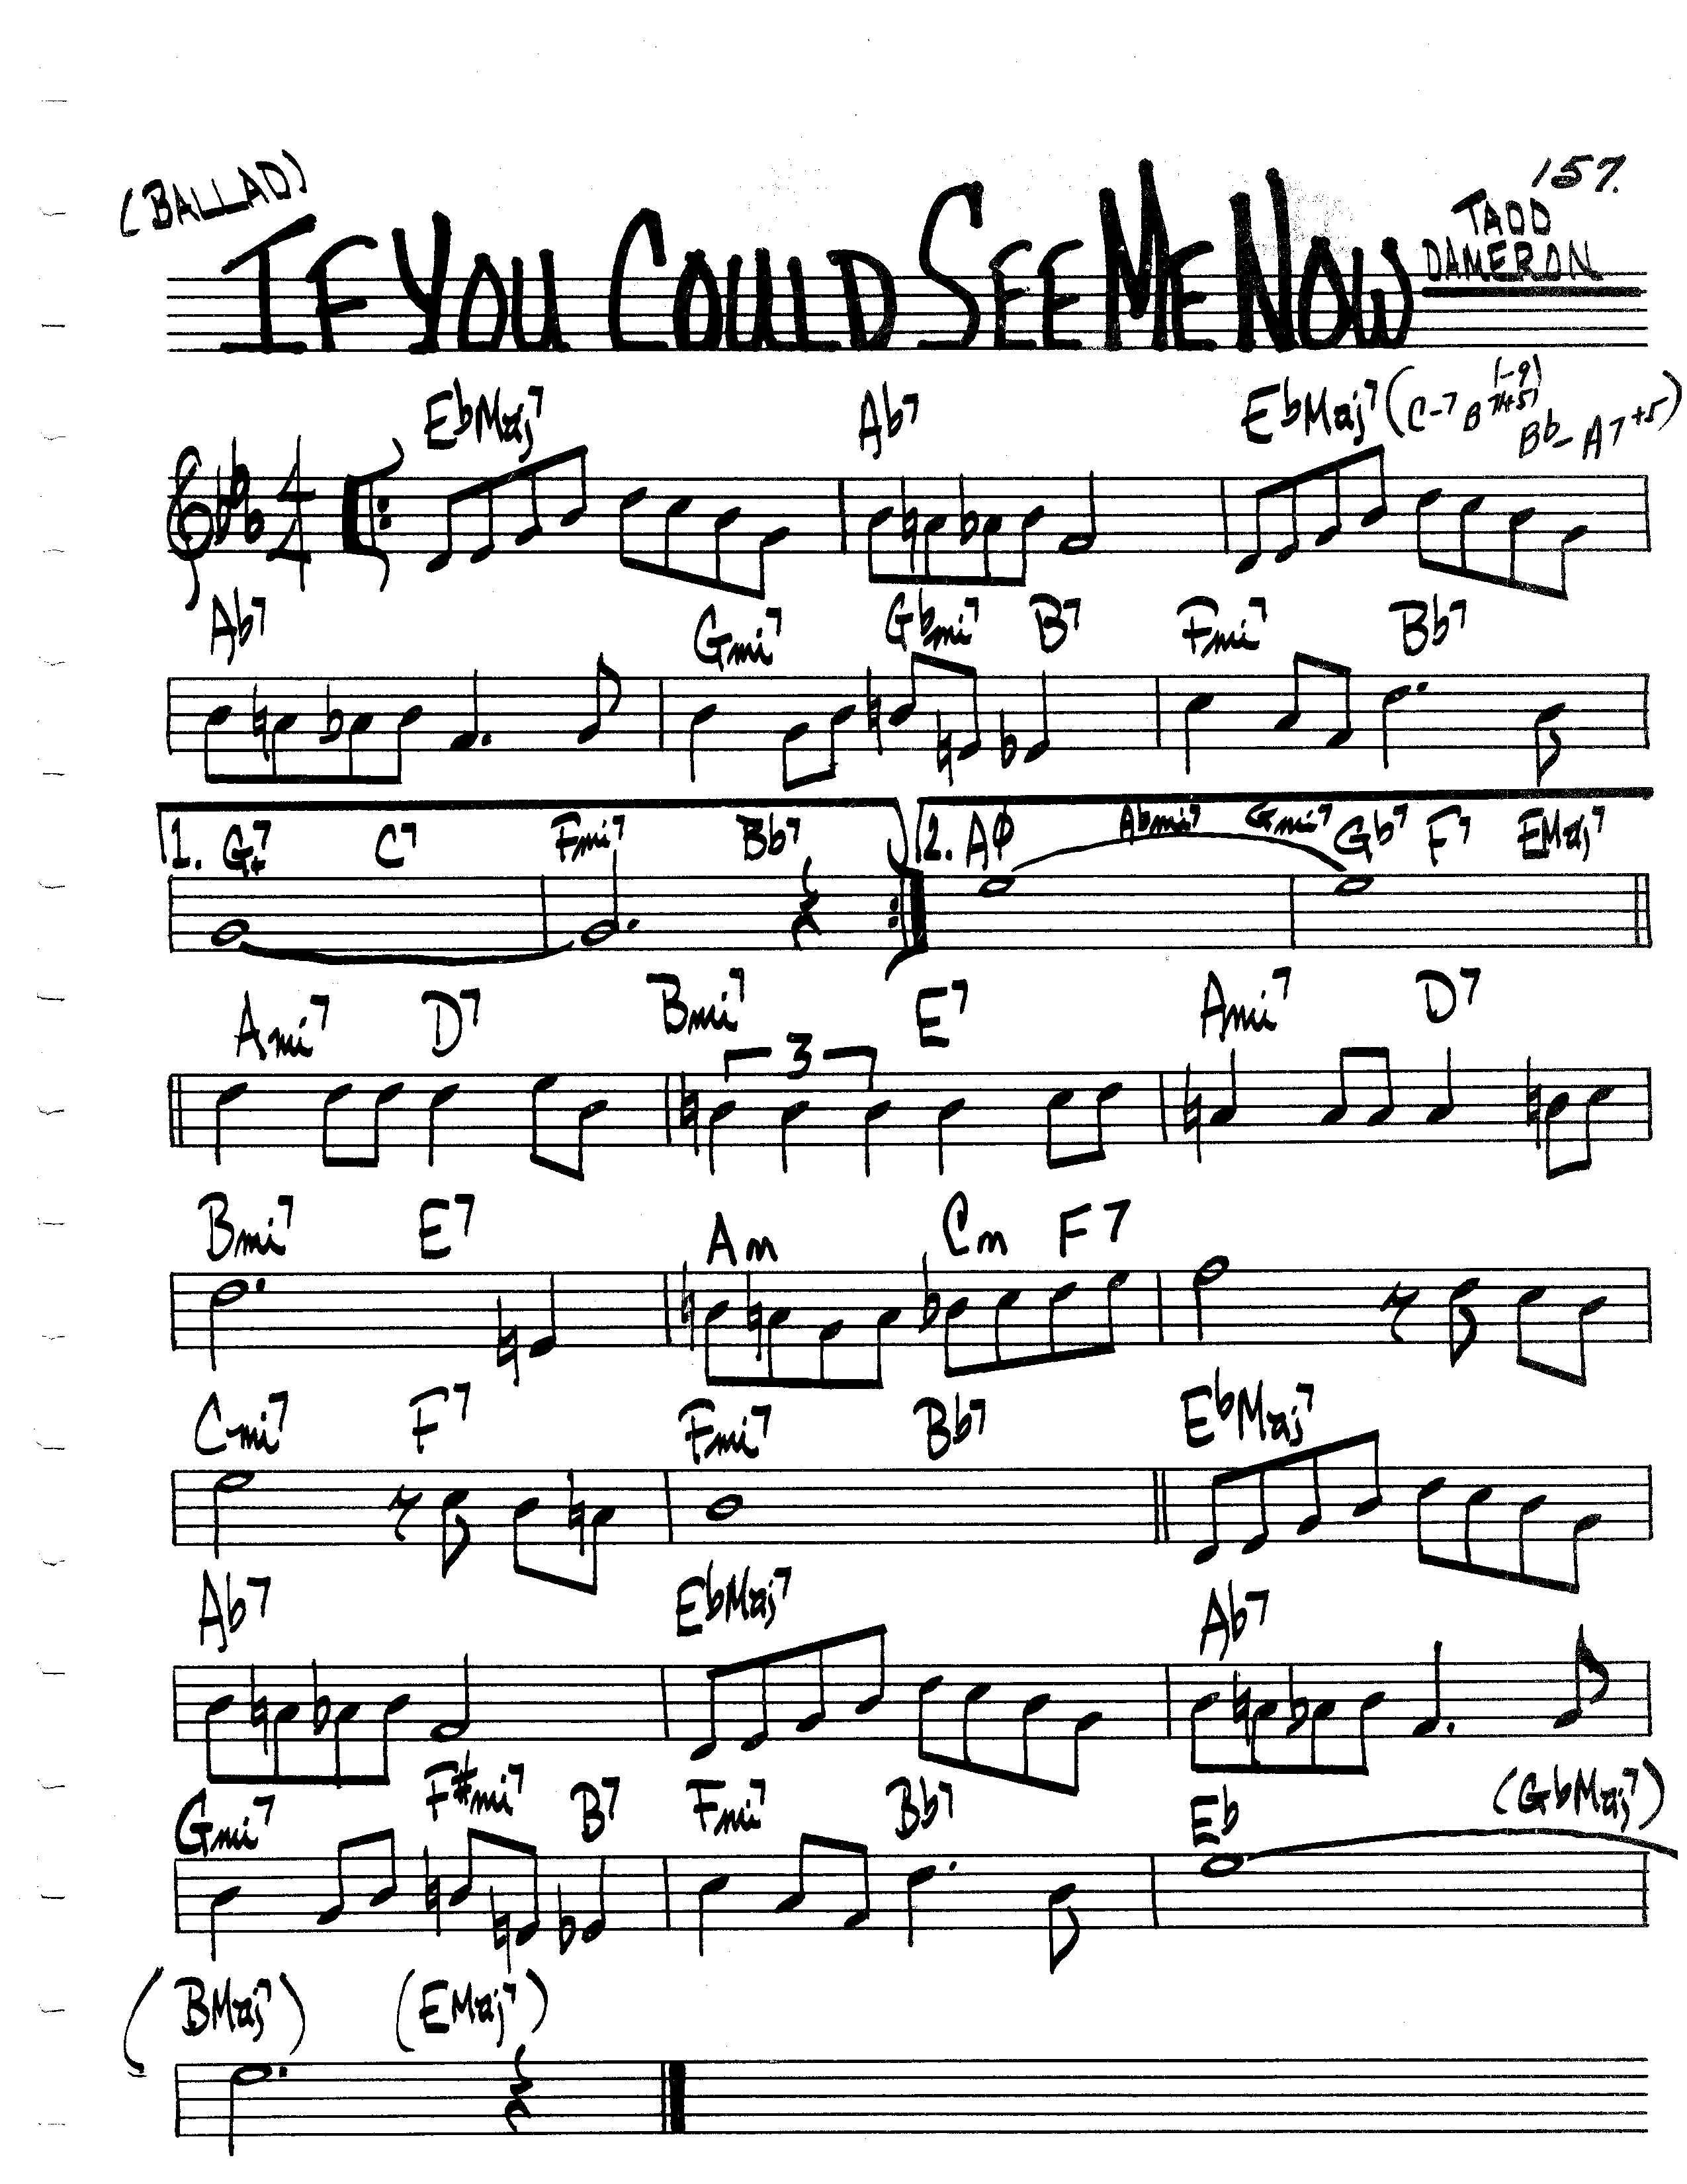 157.
(BALLAD)
IF YOU COULD SEE ME NOW
TADD
DAMERON
EbMaj7 Ab7 EbMaj7 (C-7 B7(-9)+5 Bb- A7+5)
4/4
Ab7 Gmi7 Gbmi7 B7 Fmi7 Bb7
1. G+7 C7 Fmi7 Bb7 2. Aø Abmi7 Gmi7 Gb7 F7 EMaj7
Ami7 D7 Bmi7 E7 Ami7 D7
3
Bmi7 E7 Am Cm F7
Cmi7 F7 Fmi7 Bb7 EbMaj7
Ab7 EbMaj7 Ab7
Gmi7 F#mi7 B7 Fmi7 Bb7 Eb (GbMaj7)
(BMaj7) (EMaj7)